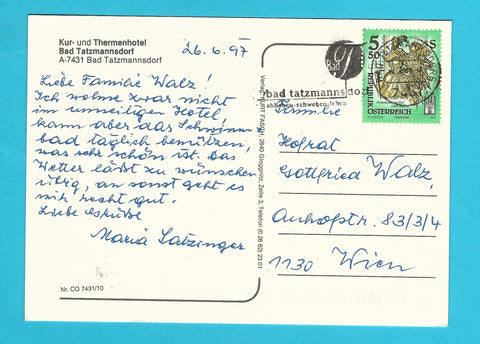 Kur- und Thermenhotel
Bad Tatzmannsdorf
A-7431 Bad Tatzmannsdorf
26.6.97
Liebe Familie Walz!
Ich wohne zwar nicht
im umseitigen Hotel
kann aber das Schwimm-
bad täglich benützen,
was sehr schön ist. Das
Wetter läßt zu wünschen
übrig, ansonst geht es
mir recht gut.
Liebe Grüße
Maria Satzinger
Nr. CO 7431/10
Verlag KURT FASCHING, 2640 Gloggnitz, Zeile 3, Telefon (0 26 62) 23 01
Bad
bad tatzmannsdorf
abheben-schweben-leben
5 50 S
REPUBLIK
ÖSTERREICH
Familie
Hofrat
Gottfried Walz,
83/3/4
1130 Wien